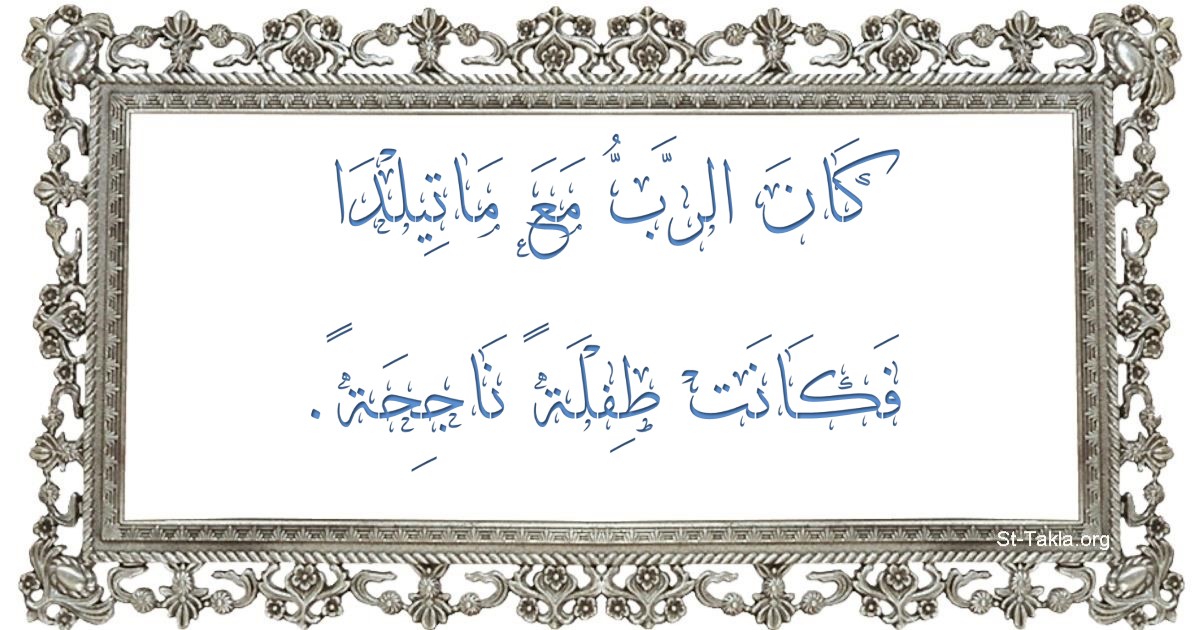 كَانَ الرَّبُّ مَعَ مَاتِيلْدَا
فَكَانَت طِفْلَةً نَاجِحَةً.
St-Takla.org